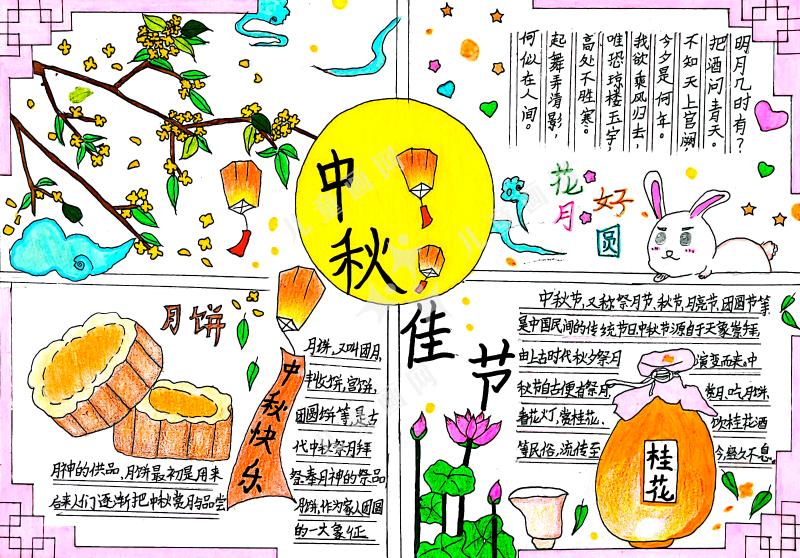 中秋佳节
明月几时有？
把酒问青天。
不知天上宫阙
今夕是何年。
我欲乘风归去，
唯恐琼楼玉宇
高处不胜寒。
起舞弄清影，
何似在人间。
花好
月圆
月饼
月饼，又叫团月、
丰收饼、宫饼、
团圆饼等，是古
代中秋祭月拜
月神的供品，月饼最初是用来
祭奉月神的祭品
后来人们逐渐把中秋赏月与品尝
月饼，作为家人团圆
的一大象征
中秋快乐
中秋节，又称祭月节、秋节、月亮节、团圆节等
是中国民间的传统节日中秋节源自于天象崇拜，
由上古时代秋夕祭月 演变而来。中
秋节自古便有祭月、 赏月、吃月饼、
看花灯，赏桂花、 饮桂花酒
等民俗，流传至 今，经久不息。
桂花